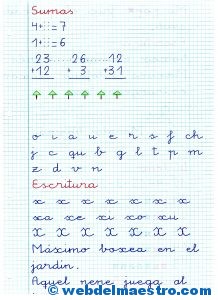 Sumas
4+ =7
1+ =6
23 26 12
+12 + 3 +31
o i a u e r s f ch
j c qu b g l t p m
z d v n
Escritura
x x x x x x x
xa xe xi xo xu
X X X X X X X
Máximo boxea en el
jardín.
Aquel nene juega al
© webdelmaestro.com